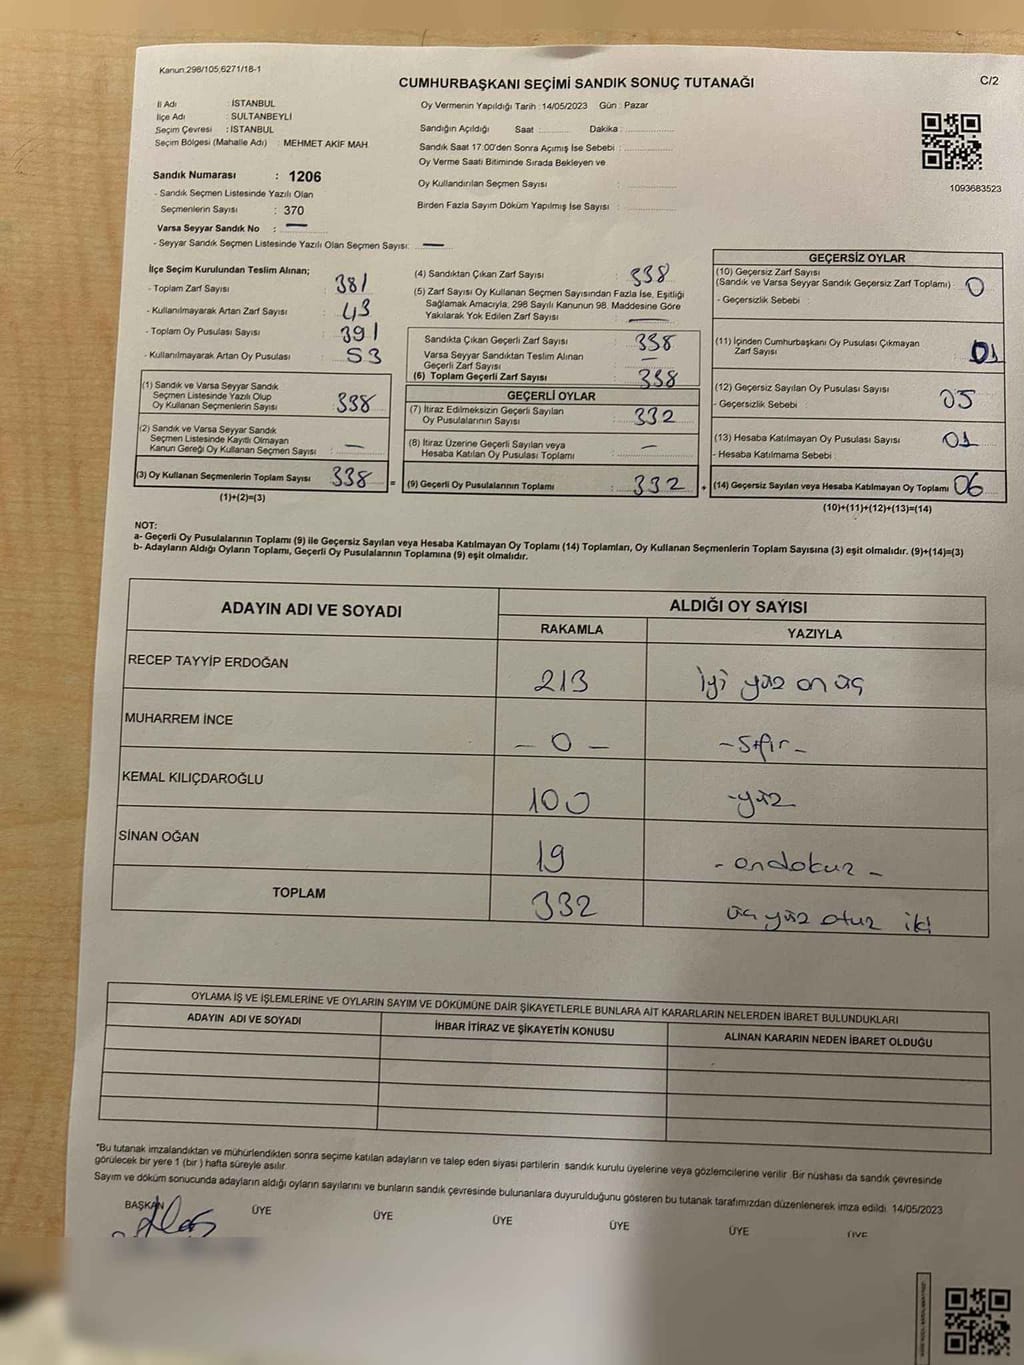 Kanun:298/105,6271/18-1
CUMHURBAŞKANI SEÇİMİ SANDIK SONUÇ TUTANAĞI
C/2
İl Adı : İSTANBUL
İlçe Adı : SULTANBEYLİ
Seçim Çevresi : İSTANBUL
Seçim Bölgesi (Mahalle Adı) : MEHMET AKİF MAH
Sandık Numarası : 1206
- Sandık Seçmen Listesinde Yazılı Olan
Seçmenlerin Sayısı : 370
Varsa Seyyar Sandık No : —
- Seyyar Sandık Seçmen Listesinde Yazılı Olan Seçmen Sayısı: —
Oy Vermenin Yapıldığı Tarih :14/05/2023 Gün : Pazar
Sandığın Açıldığı Saat : Dakika :
Sandık Saat 17.00'den Sonra Açımış İse Sebebi :
Oy Verme Saati Bitiminde Sırada Bekleyen ve
Oy Kullandırılan Seçmen Sayısı :
Birden Fazla Sayım Döküm Yapılmış İse Sayısı :
1093683523
İlçe Seçim Kurulundan Teslim Alınan;
- Toplam Zarf Sayısı : 381
- Kullanılmayarak Artan Zarf Sayısı : 43
- Toplam Oy Pusulası Sayısı : 391
- Kullanılmayarak Artan Oy Pusulası : 53
(1) Sandık ve Varsa Seyyar Sandık
Seçmen Listesinde Yazılı Olup
Oy Kullanan Seçmenlerin Sayısı : 338
(2) Sandık ve Varsa Seyyar Sandık
Seçmen Listesinde Kayıtlı Olmayan
Kanun Gereği Oy Kullanan Seçmen Sayısı : —
(3) Oy Kullanan Seçmenlerin Toplam Sayısı 338 =
(1)+(2)=(3)
(4) Sandıktan Çıkan Zarf Sayısı : 338
(5) Zarf Sayısı Oy Kullanan Seçmen Sayısından Fazla İse, Eşitliği
Sağlamak Amacıyla, 298 Sayılı Kanunun 98. Maddesine Göre
Yakılarak Yok Edilen Zarf Sayısı : —
Sandıkta Çıkan Geçerli Zarf Sayısı : 338
Varsa Seyyar Sandıktan Teslim Alınan
Geçerli Zarf Sayısı : —
(6) Toplam Geçerli Zarf Sayısı : 338
GEÇERLİ OYLAR
(7) İtiraz Edilmeksizin Geçerli Sayılan
Oy Pusulalarının Sayısı : 332
(8) İtiraz Üzerine Geçerli Sayılan veya
Hesaba Katılan Oy Pusulası Toplamı : —
(9) Geçerli Oy Pusulalarının Toplamı : 332 +
GEÇERSİZ OYLAR
(10) Geçersiz Zarf Sayısı
(Sandık ve Varsa Seyyar Sandık Geçersiz Zarf Toplamı) : 0
- Geçersizlik Sebebi :
(11) İçinden Cumhurbaşkanı Oy Pusulası Çıkmayan
Zarf Sayısı 01
(12) Geçersiz Sayılan Oy Pusulası Sayısı
- Geçersizlik Sebebi : 05
(13) Hesaba Katılmayan Oy Pusulası Sayısı 01
- Hesaba Katılmama Sebebi :
(14) Geçersiz Sayılan veya Hesaba Katılmayan Oy Toplamı 06
(10)+(11)+(12)+(13)=(14)
NOT:
a- Geçerli Oy Pusulalarının Toplamı (9) ile Geçersiz Sayılan veya Hesaba Katılmayan Oy Toplamı (14) Toplamları, Oy Kullanan Seçmenlerin Toplam Sayısına (3) eşit olmalıdır. (9)+(14)=(3)
b- Adayların Aldığı Oyların Toplamı, Geçerli Oy Pusulalarının Toplamına (9) eşit olmalıdır.
ADAYIN ADI VE SOYADI ALDIĞI OY SAYISI
RAKAMLA YAZIYLA
RECEP TAYYİP ERDOĞAN 213 iyi yüz on üç
MUHARREM İNCE - 0 - - sıfır -
KEMAL KILIÇDAROĞLU 100 - yüz
SİNAN OĞAN 19 - ondokuz -
TOPLAM 332 üç yüz otuz iki
OYLAMA İŞ VE İŞLEMLERİNE VE OYLARIN SAYIM VE DÖKÜMÜNE DAİR ŞİKAYETLERLE BUNLARA AİT KARARLARIN NELERDEN İBARET BULUNDUKLARI
ADAYIN ADI VE SOYADI İHBAR İTİRAZ VE ŞİKAYETİN KONUSU ALINAN KARARIN NEDEN İBARET OLDUĞU
*Bu tutanak imzalandıktan ve mühürlendikten sonra seçime katılan adayların ve talep eden siyasi partilerin sandık kurulu üyelerine veya gözlemcilerine verilir. Bir nüshası da sandık çevresinde
görülecek bir yere 1 (bir) hafta süreyle asılır.
Sayım ve döküm sonucunda adayların aldığı oyların sayılarını ve bunların sandık çevresinde bulunanlara duyurulduğunu gösteren bu tutanak tarafımızdan düzenlenerek imza edildi. 14/05/2023
BAŞKAN ÜYE ÜYE ÜYE ÜYE ÜYE ÜYE